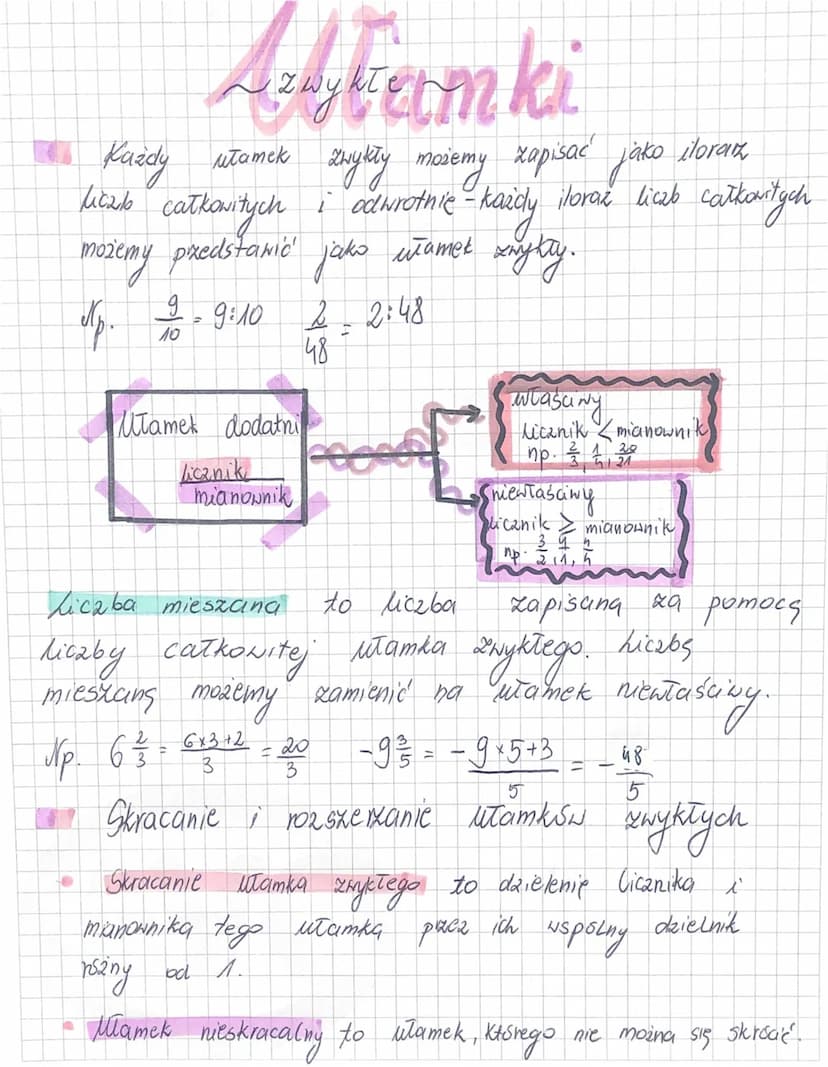 Ułamki
~zwykłe~
Każdy ułamek zwykły możemy zapisać jako iloraz
liczb całkowitych i odwrotnie - każdy iloraz liczb całkowitych
możemy przedstawić jako ułamek zwykły.
Np. 9/10 = 9:10 2/48 = 2:48
Ułamek dodatni
licznik
mianownik
właściwy
licznik < mianownik
np. 2/3, 1/4, 20/21
niewłaściwy
licznik ⩾ mianownik
np. 3/2, 4/1, 4/4
Liczba mieszana to liczba zapisaną za pomocą
liczby całkowitej ułamka zwykłego. Liczbę
mieszaną możemy zamienić na ułamek niewłaściwy.
Np. 6 2/3 = 6x3+2/3 = 20/3 -9 3/5 = - 9x5+3/5 = - 48/5
Skracanie i rozszerzanie ułamków zwykłych
• Skracanie ułamka zwykłego to dzielenie licznika i
mianownika tego ułamka przez ich wspólny dzielnik
różny od 1.
• Ułamek nieskracalny to ułamek, którego nie można się skrócić.